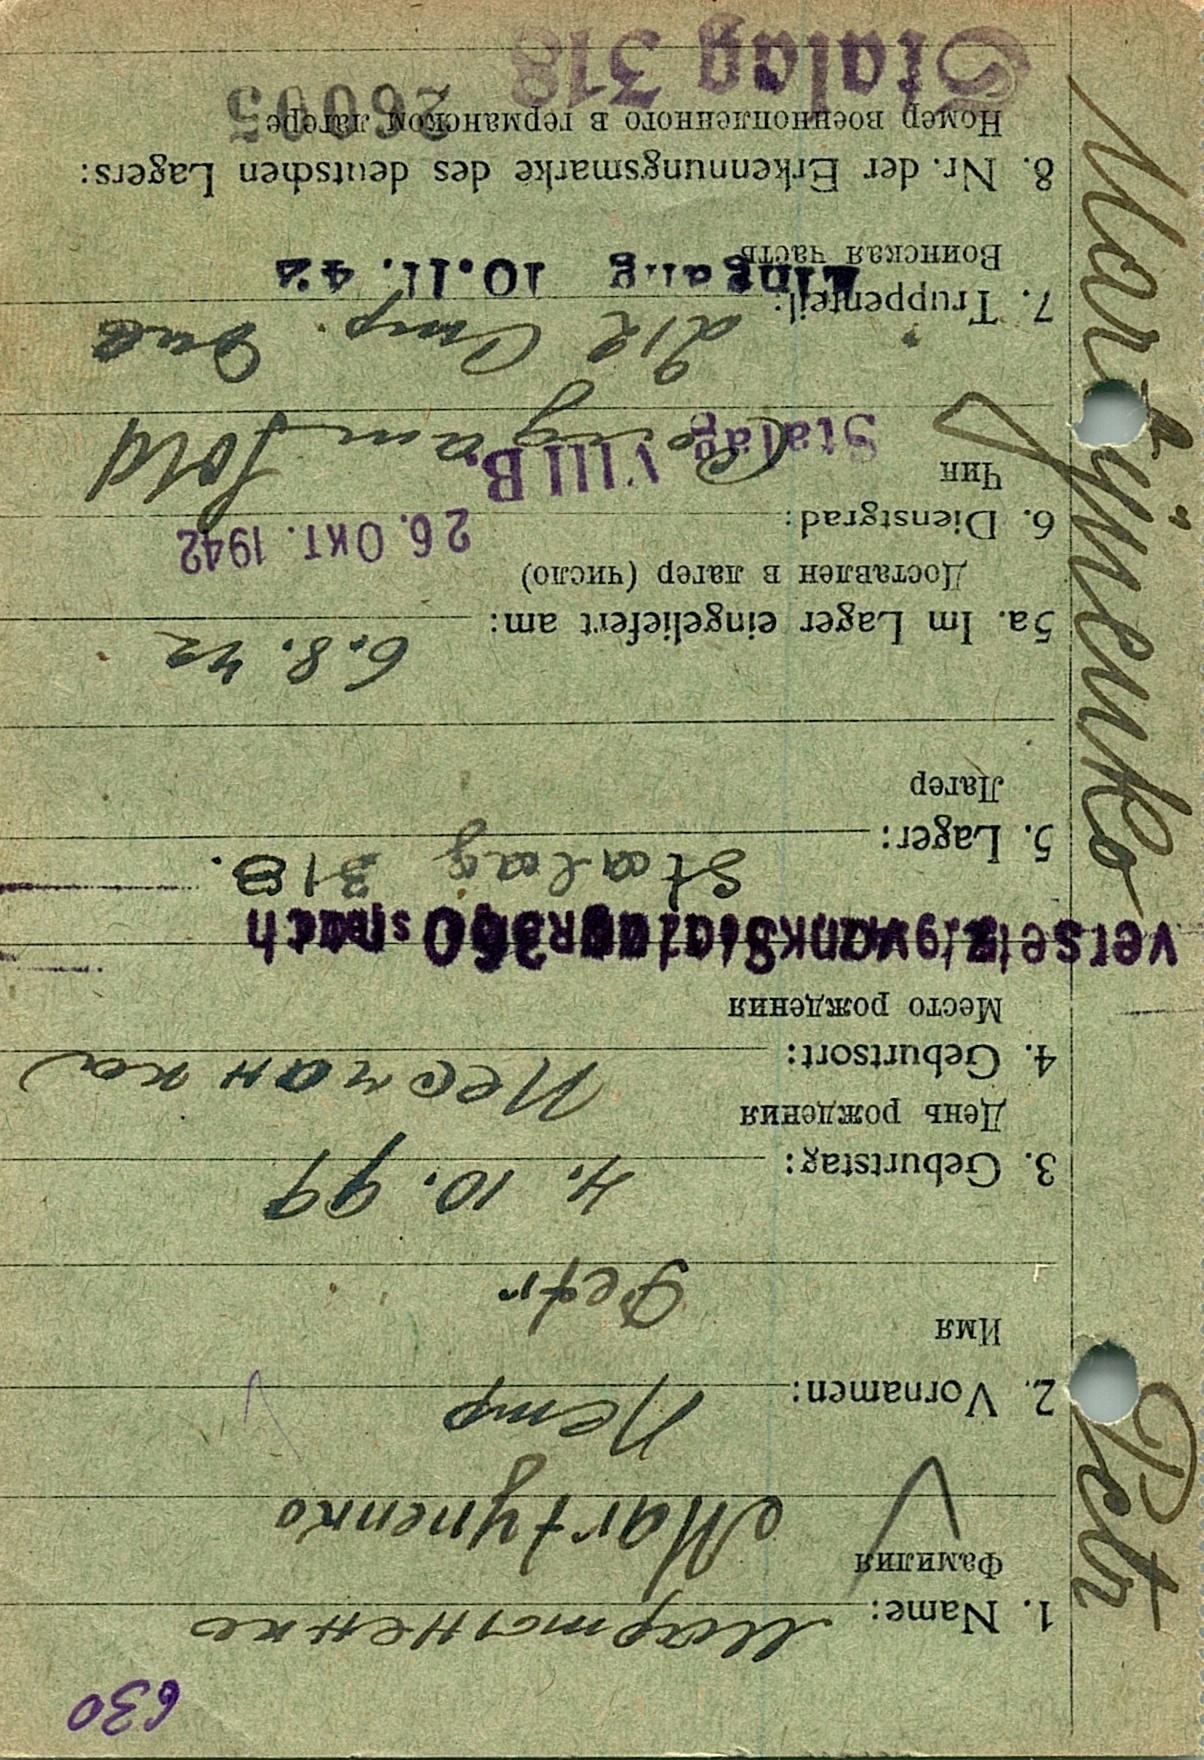 630
Petr Martÿnenko
1. Name: Мартыненко
Фамилия Martynenko
2. Vornamen: Петр
Имя Petr
3. Geburtstag: 4. 10. 99
День рождения
4. Geburtsort: Песчанка
Место рождения
versetzt nach
Stalag 360
5. Lager: Stalag 318.
Лагер
5a. Im Lager eingeliefert am: 6.8.42
Доставлен в лагер (число)
26. OKT. 1942
6. Dienstgrad: Sold
Чин
Stalag VIII B.
7. Truppenteil: 212
Воинская часть
Eingang 10.11.42
8. Nr. der Erkennungsmarke des deutschen Lagers:
Номер военнопленного в германском лагере
26005
Stalag 318